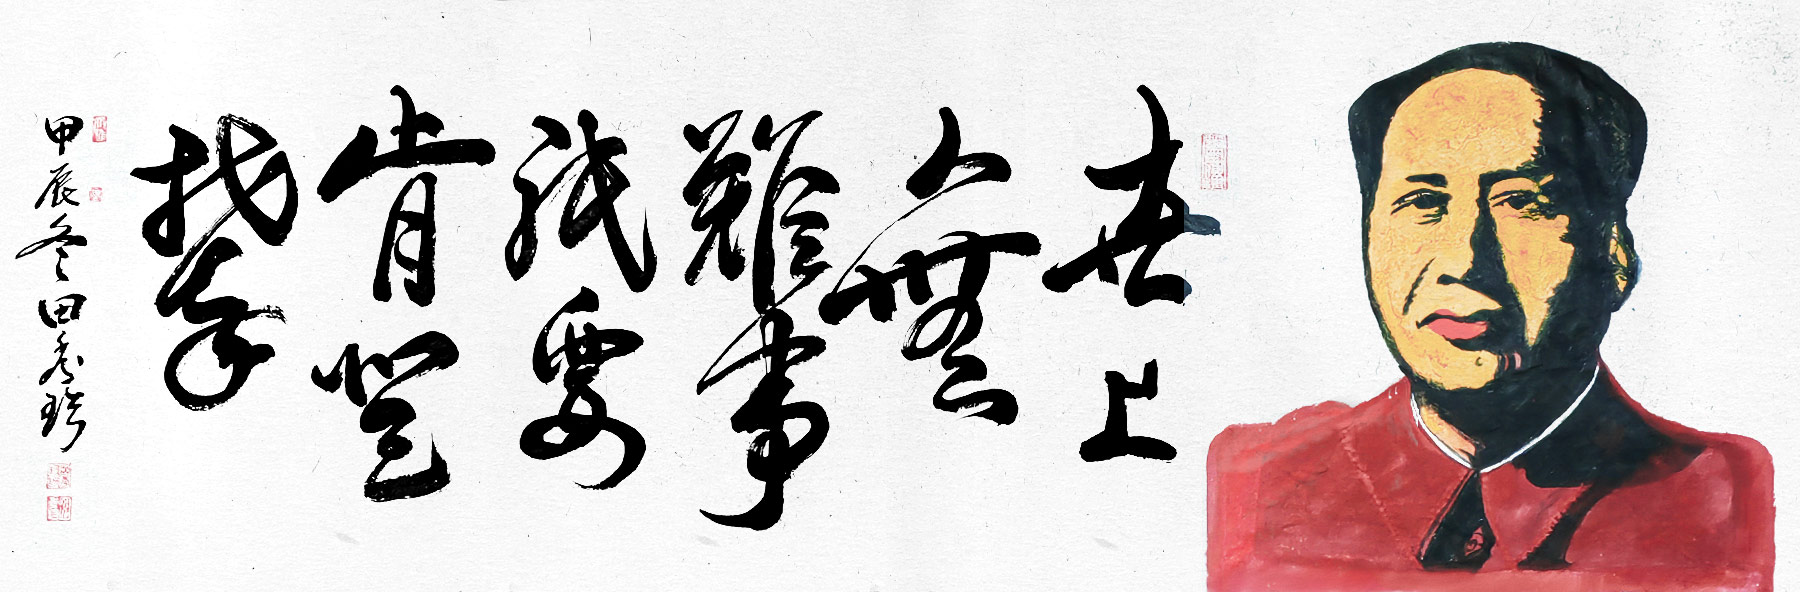 世上
無
難事
祇要
肯登
攀
甲辰冬田秀